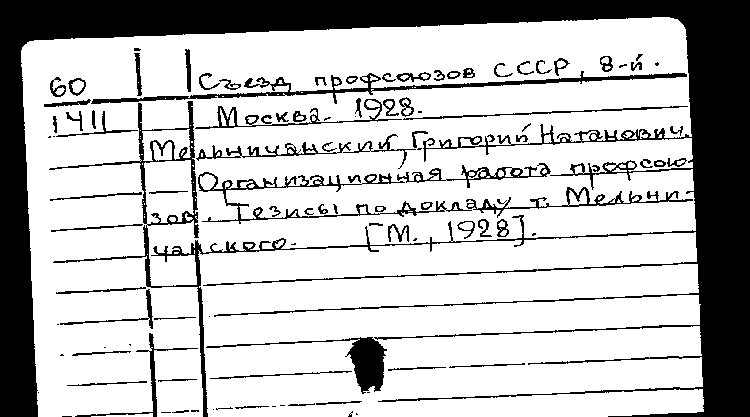 60 Съезд профсоюзов СССР, 8-й.
1411 Москва. 1928.
Мельничанский, Григорий Натанович.
Организационная работа профсою-
зов. Тезисы по докладу т. Мельни-
чанского. [М., 1928].